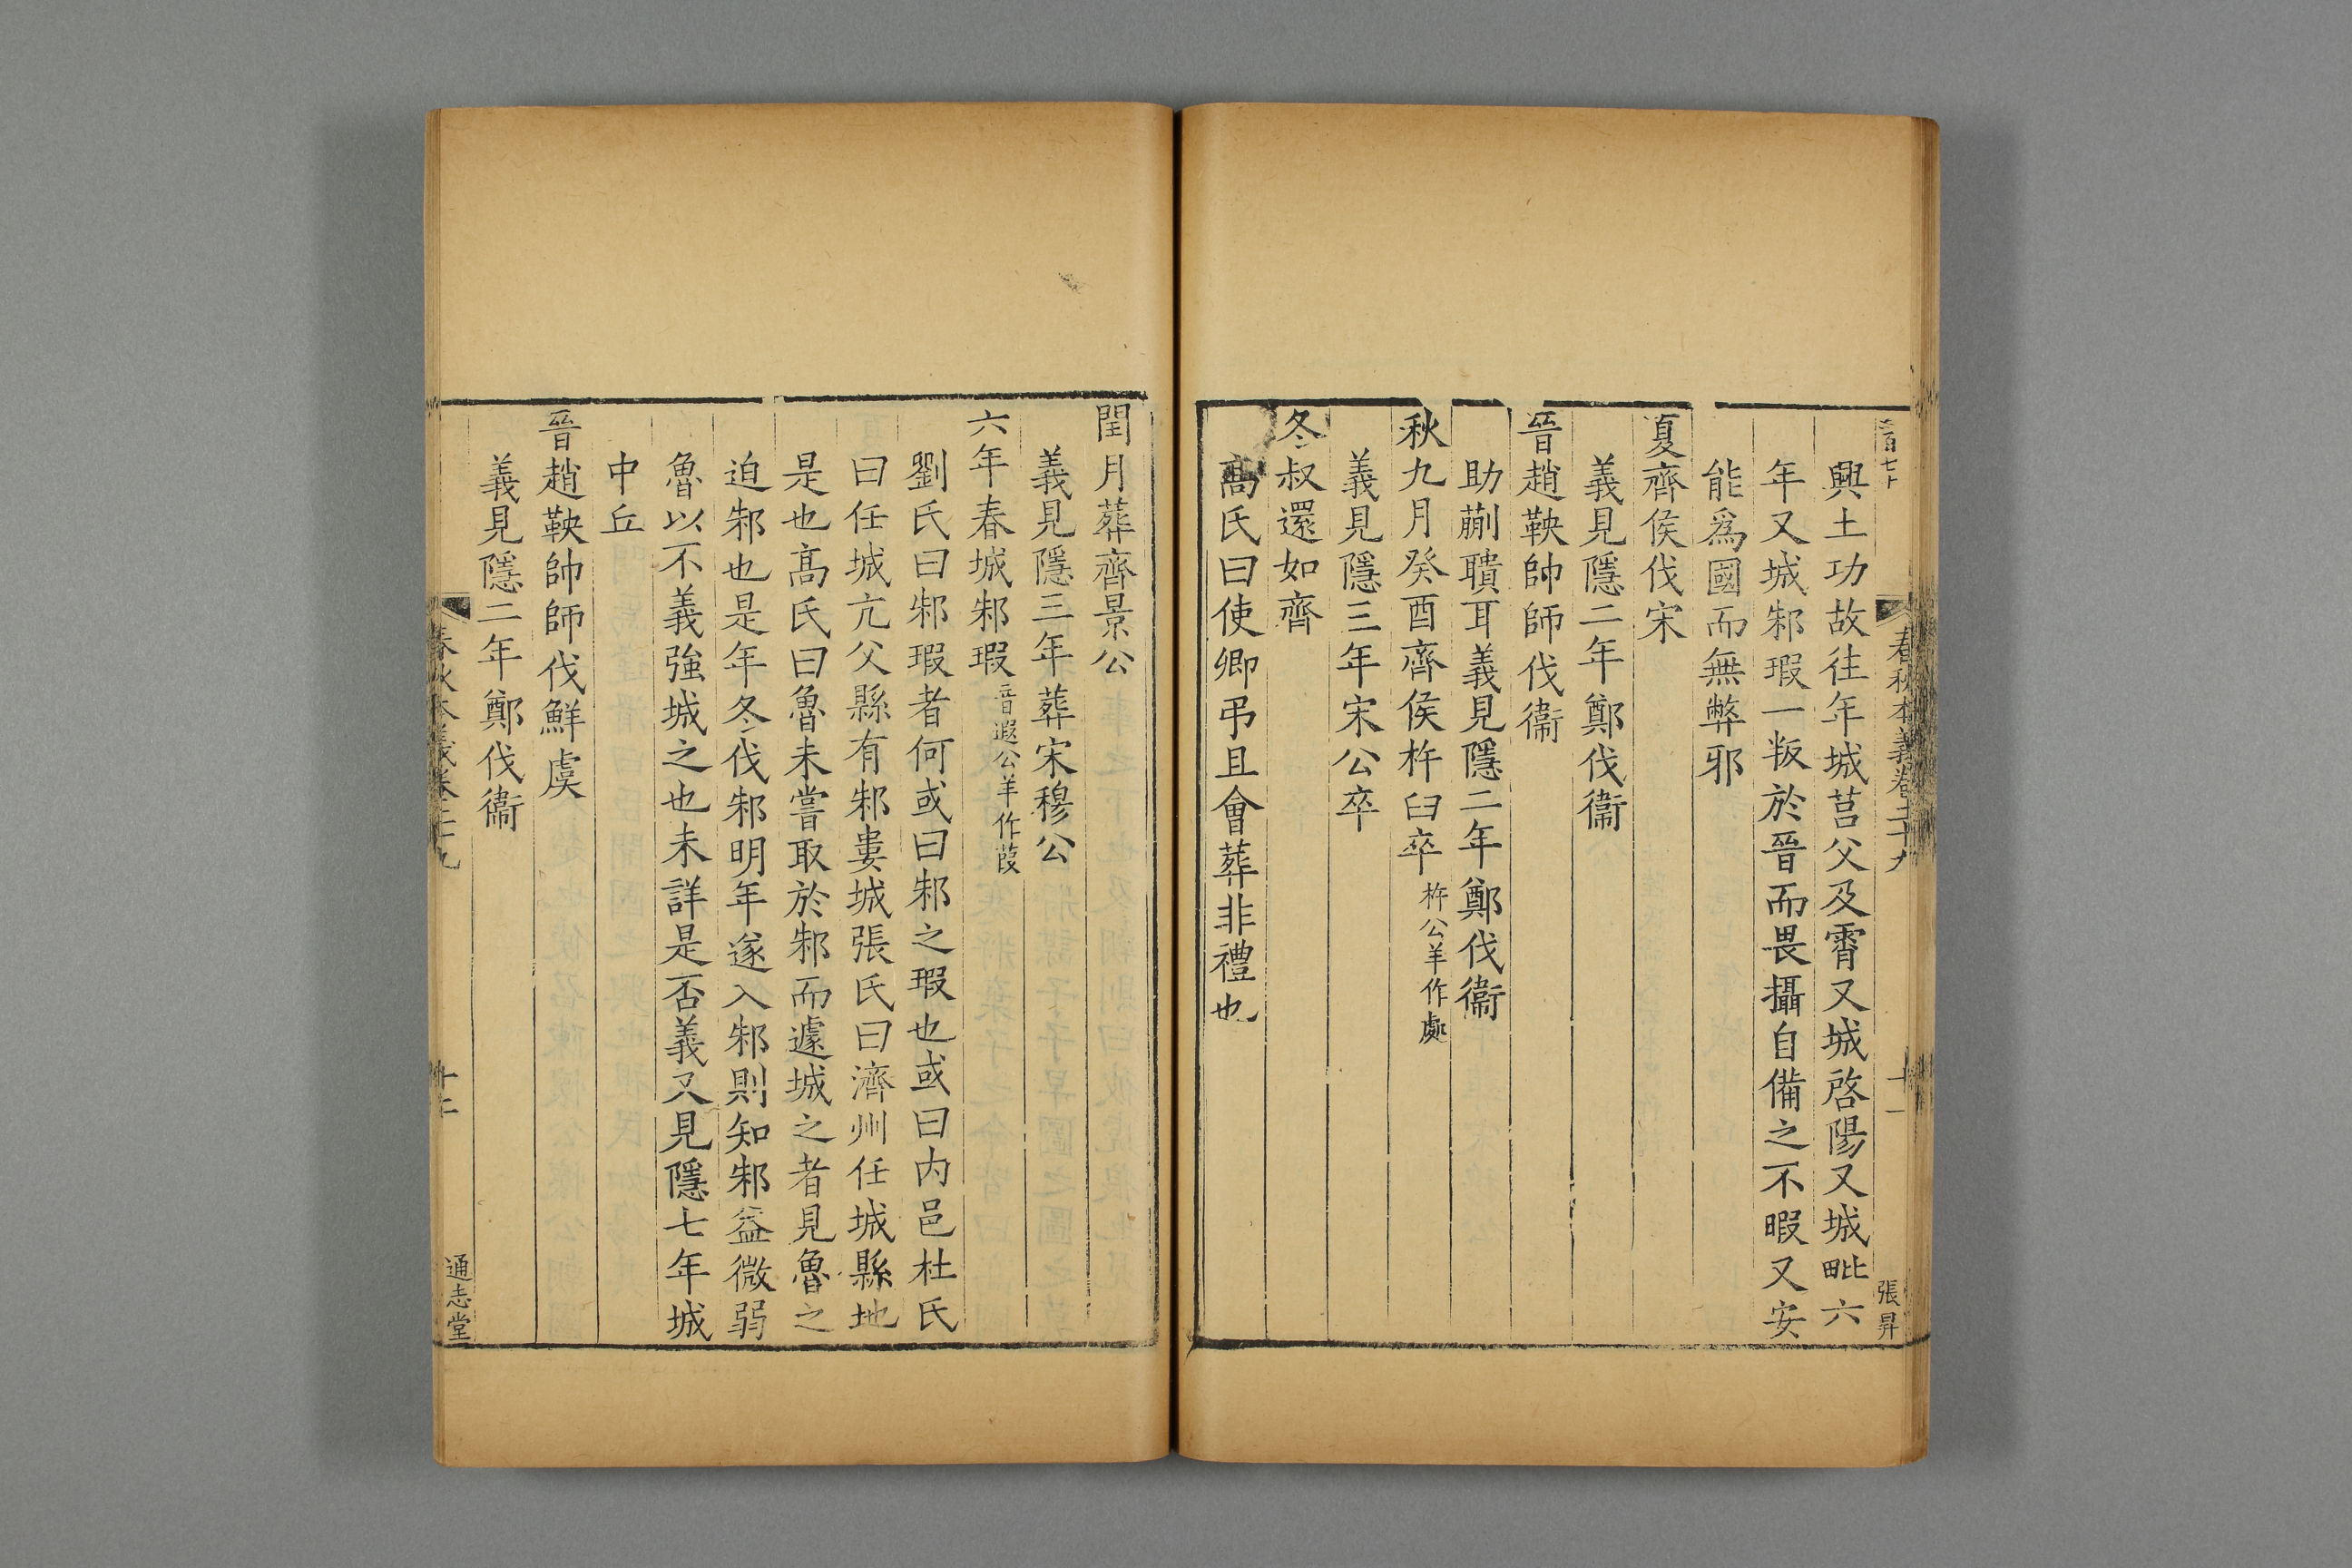 春秋本義卷二十九
十一
張昇
興土功故往年城莒父及霄又城啓陽又城毗六
年又城邾瑕一叛於晉而畏攝自備之不暇又安
能爲國而無弊邪
夏齊侯伐宋
義見隱二年鄭伐衞
晉趙鞅帥師伐衞
助蒯聵耳義見隱二年鄭伐衞
秋九月癸酉齊侯杵臼卒杵公羊作處
義見隱三年宋公卒
冬叔還如齊
髙氏曰使卿弔且會葬非禮也
閏月葬齊景公
義見隱三年葬宋穆公
六年春城邾瑕音遐公羊作葭
劉氏曰邾瑕者何或曰邾之瑕也或曰内邑杜氏
曰任城亢父縣有邾婁城張氏曰濟州任城縣地
是也髙氏曰魯未嘗取於邾而遽城之者見魯之
迫邾也是年冬伐邾明年遂入邾則知邾益微弱
魯以不義強城之也未詳是否義又見隱七年城
中丘
晉趙鞅帥師伐鮮虞
義見隱二年鄭伐衞
春秋本義卷二十九
十二
通志堂